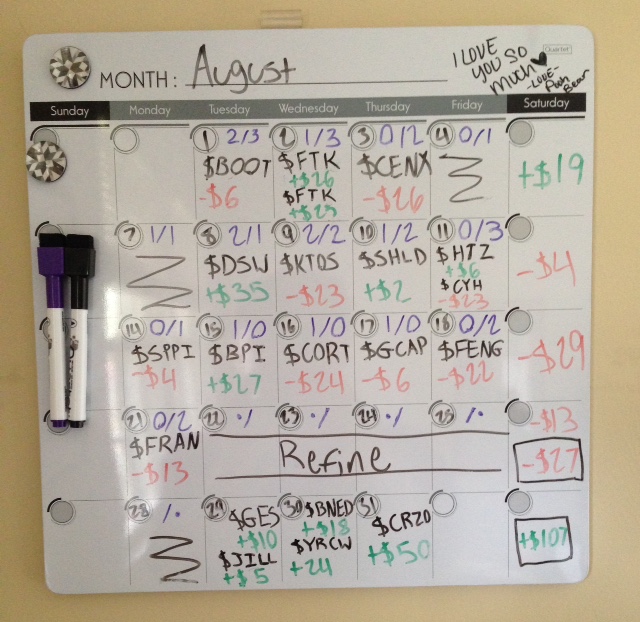 MONTH: August
I LOVE
YOU SO
MUCH
-LOVE-
Pooh
Bear
Quartet
Sunday Monday Tuesday Wednesday Thursday Friday Saturday
1 2/3 2 1/3 3 0/2 4 0/1
$BOOT $FTK $CENX
-$6 +$26 -$26 +$19
$FTK
+$25
7 1/1 8 2/1 9 2/2 10 1/2 11 0/3
$DSW $KTOS $SHLD $HTZ
+$35 -$23 +$2 +$6 -$4
$CYH
-$23
14 0/1 15 1/0 16 1/0 17 1/0 18 0/2
$SPPI $BPI $CORT $GCAP $FENG
-$4 +$27 -$24 -$6 -$22 -$29
21 0/2 22 23 24 25 -$13
$FRAN Refine
-$13 -$27
28 29 $GES 30 $BNED 31 $CRZO
+$10 +$18 +$50 +$107
$JILL $YRCW
+$5 +24